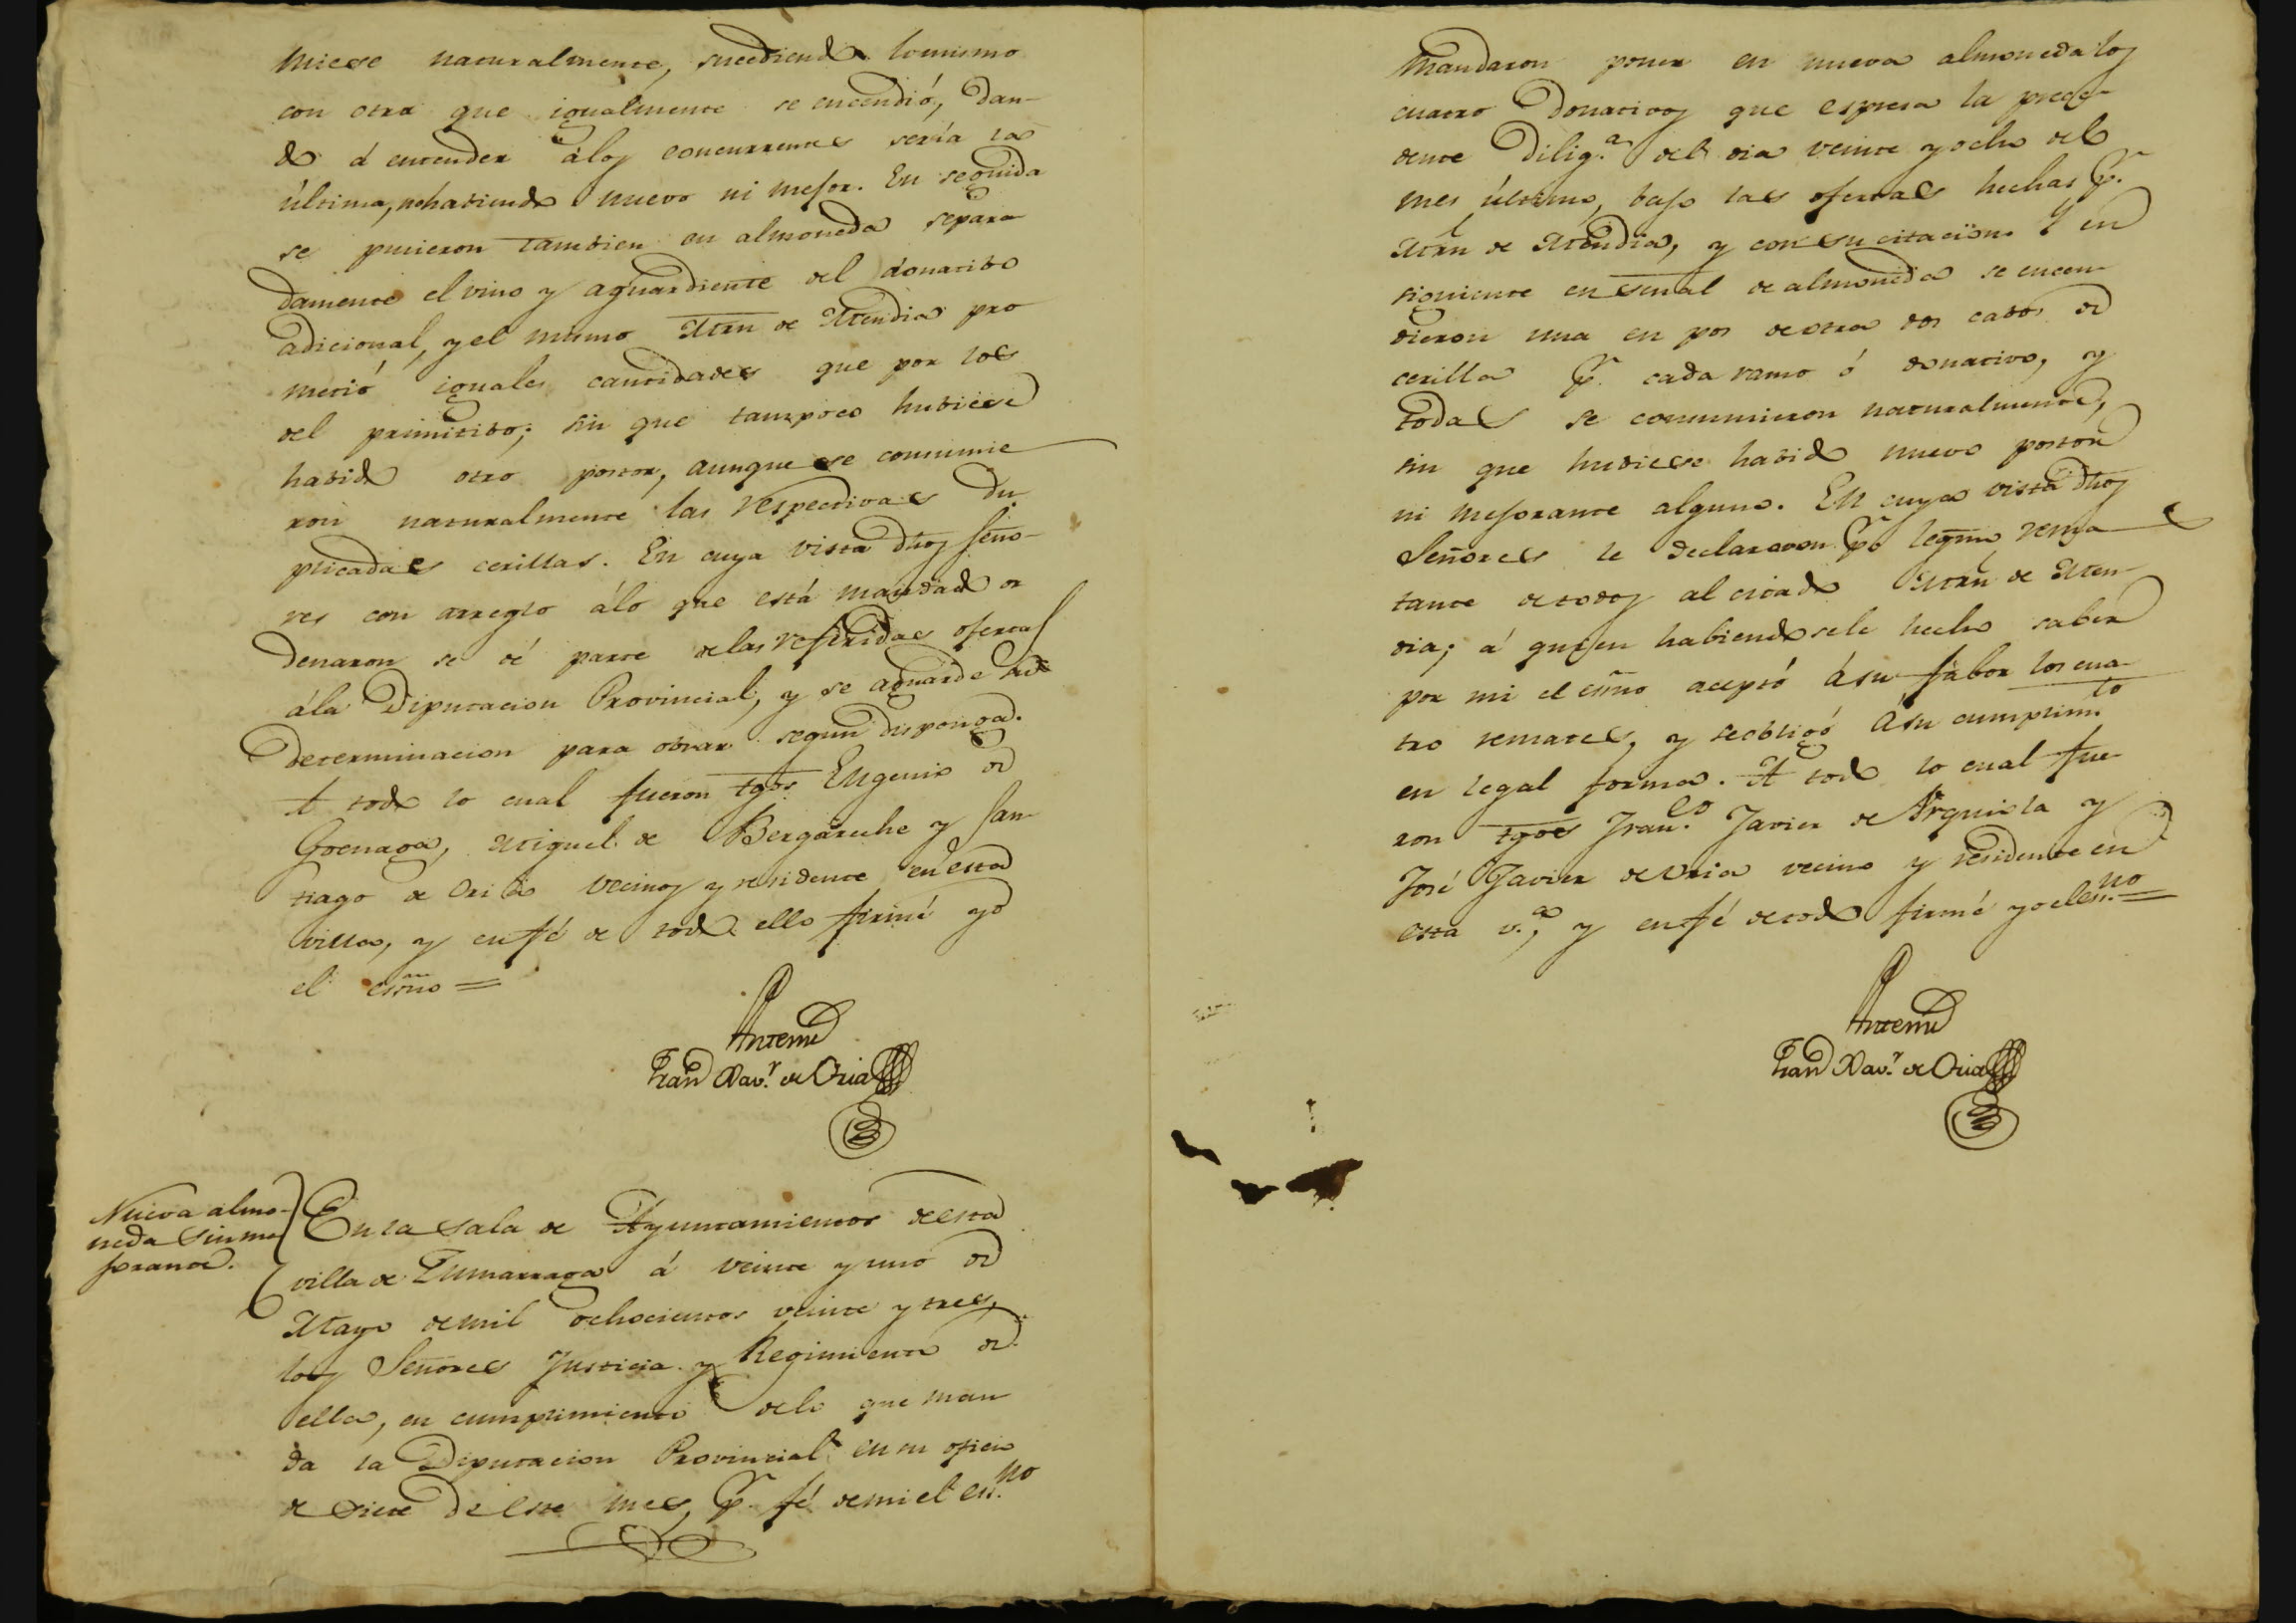 miese naturalmente, sucediendo lo mismo
con otra que igualmente se encendió, dan-
do á entender álos concurrentes sería la
última, no habiendo nuevo ni mejor. En seguida
se pusieron tambien en almoneda separa
damente el vino y aguardiente del donatibo
adicional, y el mismo Mrn de Mendia pro
metió iguales cantidades que por los
del primitibo; sin que tampoco hubiese
habido otro postor, aunque se consumie
ron naturalmente las respectivas du
plicadas cerillas. En cuya vista dhos seño-
res con arreglo álo que está mandado or
denaron se dé parte delas referidas ofertas
ála Diputacion Provincial, y se aguarde su
determinacion para obrar segun disponga.
A todo lo cual fueron tgos Eugenio de
Goenaga, Miguel de Bergareche y San
tiago de Oria vecinos y residente en esta
villa, y en fé de todo ello firmé yo
el esno =
Antemi
Fran Xav.r de Oria
Nueva almo-
neda sin me
jorante.
En la sala de Ayuntamientos de esta
villa de Zumarraga á veinte y uno de
Mayo de mil ochocientos veinte y tres,
los Señores Justicia y Regimiento de
ella, en cumplimiento delo que man
da la Diputacion Provincial en su oficio
de siete de este mes, p.r fé de mi el es.no
Mandaron poner en nueva almoneda los
cuatro donativos que espresa la prece-
dente Dilig.a del dia veinte y ocho del
mes último, bajo las ofertas hechas p.r
Mrn de Mendia, y con su citacion. Y en
siguiente en señal de almoneda se encen
dieron una en pos de otra dos cabos de
cerilla p.r cada ramo ó donativo, y
todas se consumieron naturalmente,
sin que hubiese habido nuevo postor
ni mejorante alguno. En cuya vista dhos
Señores le declararon p.r legmo rema
tante de todos al citado Mrn de Men-
dia; á quien habiendosele hecho saber
por mi el esno aceptó á su fabor los cua-
tro remates, y se obligó á su cumplim.to
en legal forma. A todo lo cual fue
ron tgos Fran.co Javier de Arquiola y
José Javier de Oria vecino y residente en
esta v.a, y en fé de todo firmé yo el es.no =
Antemi
Fran Xav.r de Oria